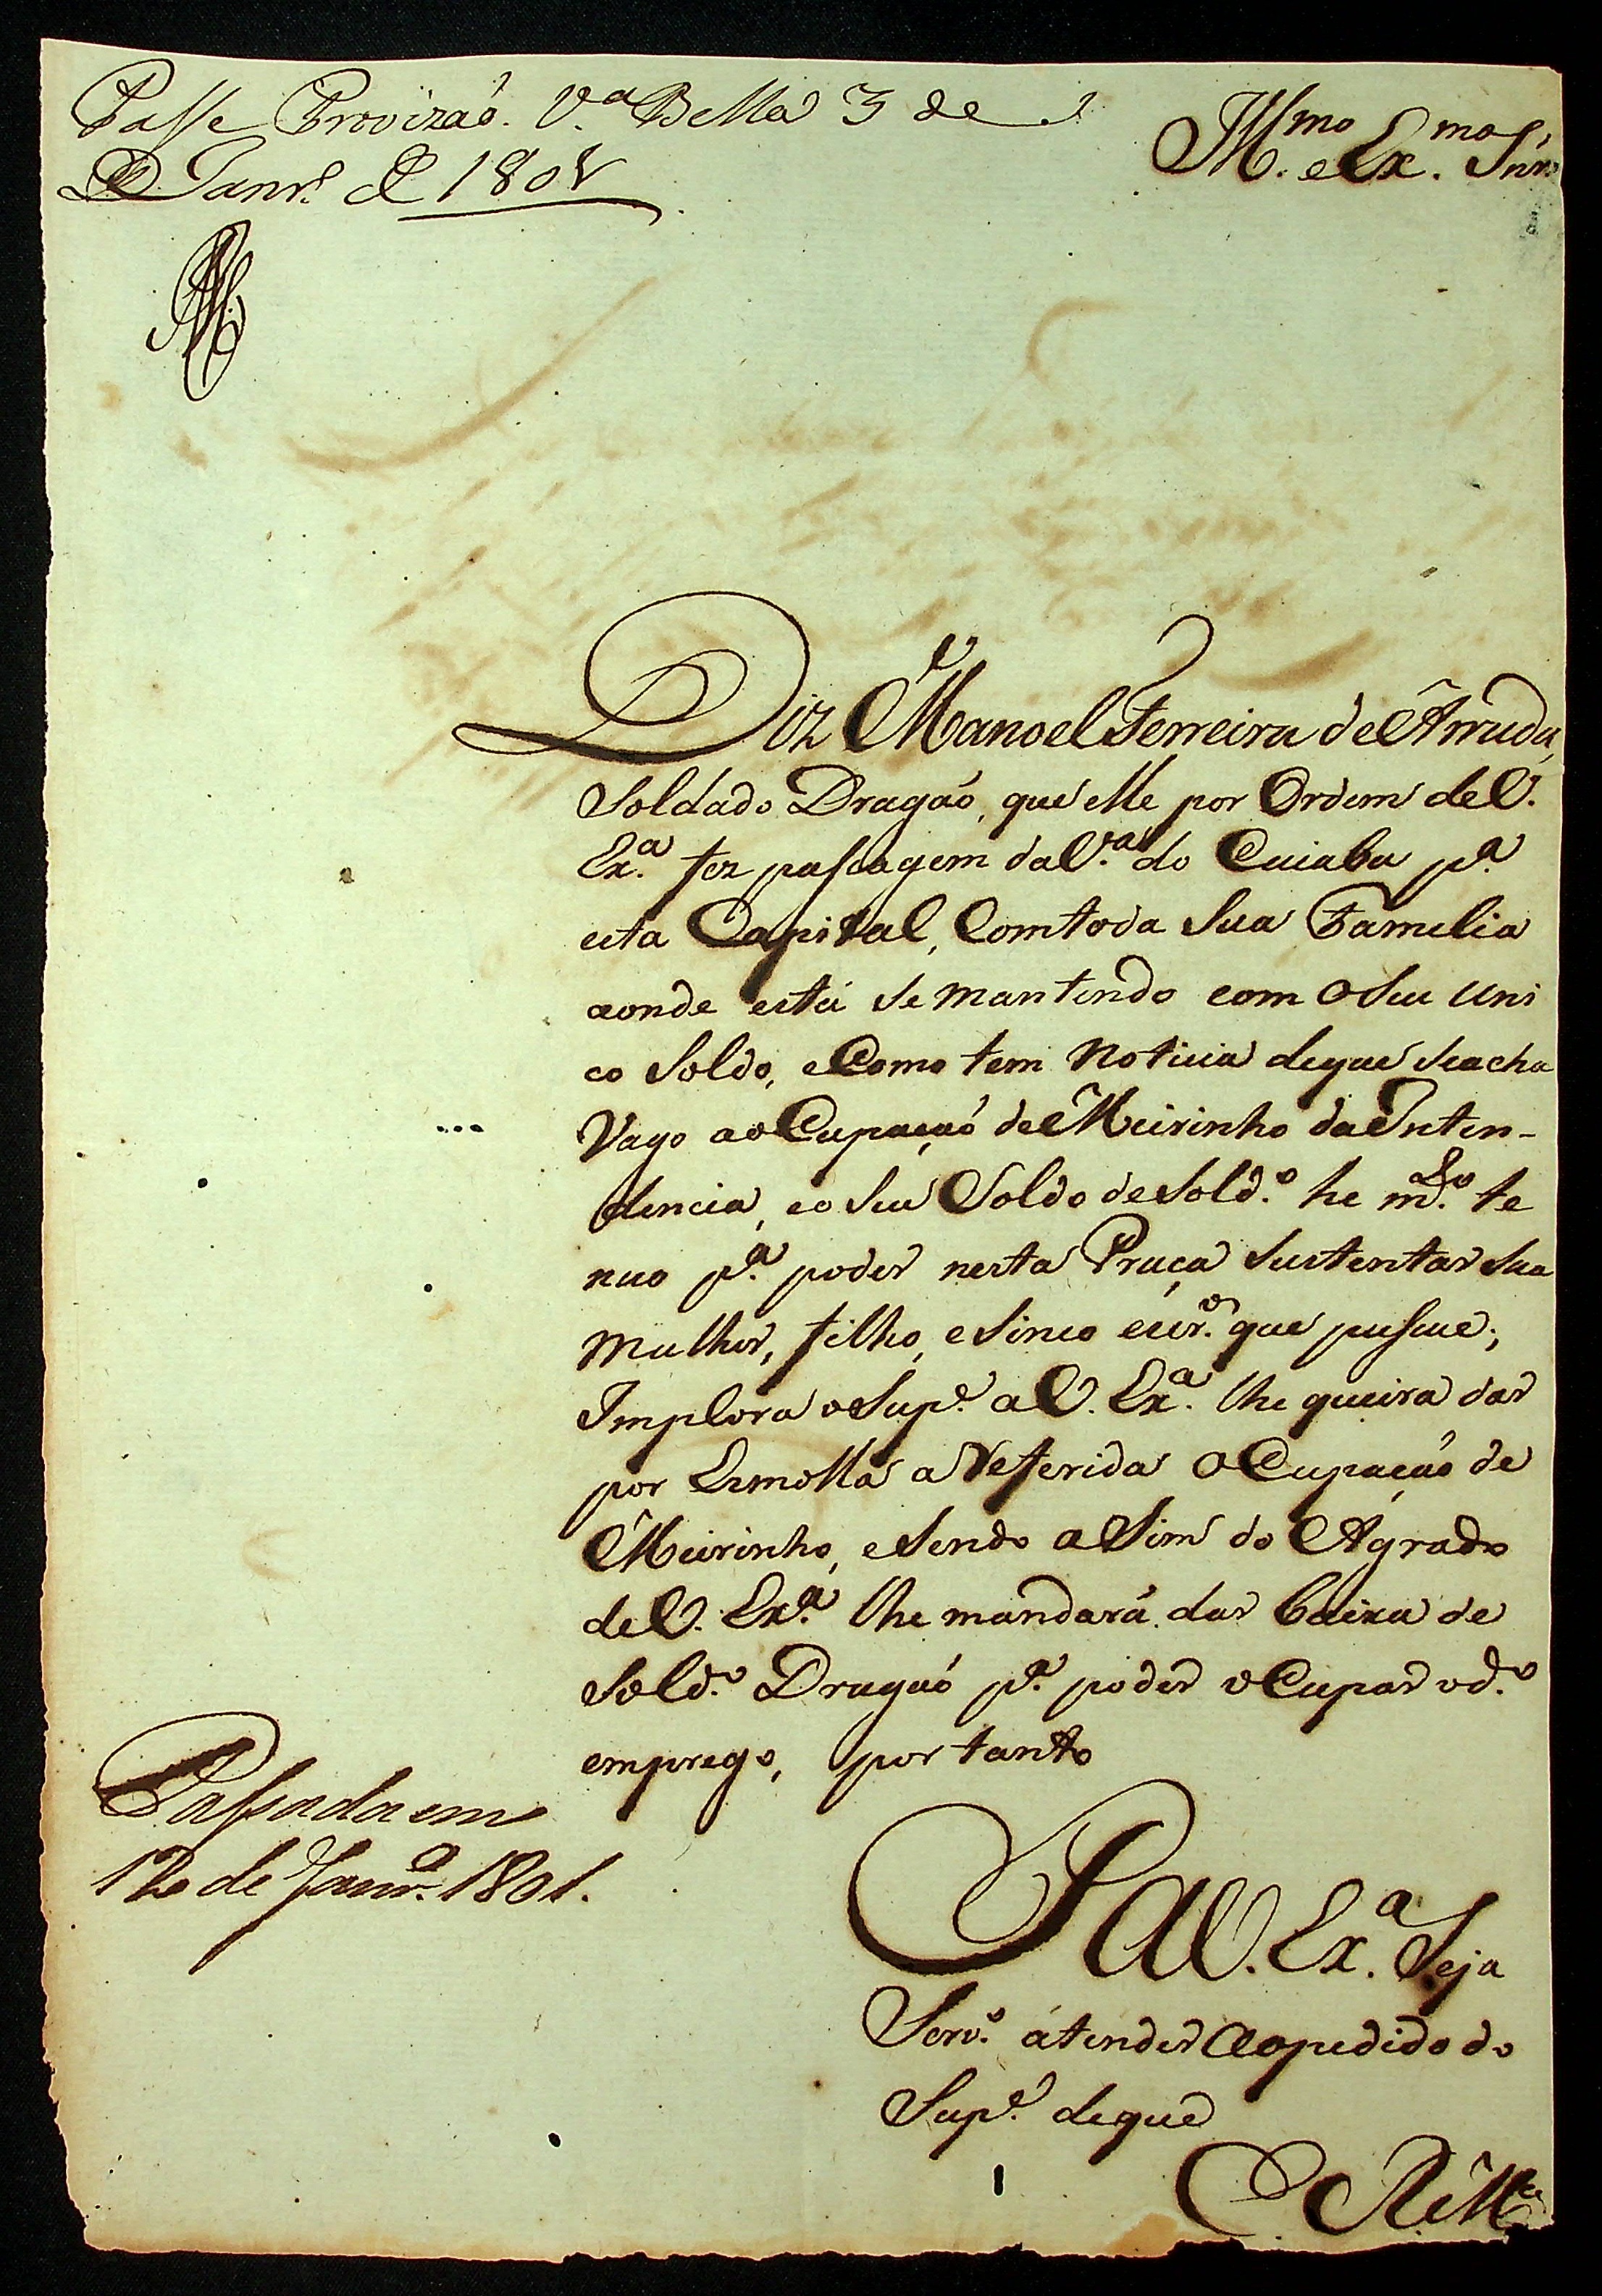 Passe Provizaõ. V.ª Bella 3 de
Janr.º de 1801
Ill.mo e Ex.mo Snr.
Diz Manoel Ferreira de Arruda,
Soldado Dragaõ, que elle por Ordem de V.
Ex.ª fez passagem da V.ª do Cuiaba p.ª
esta Capital, Com toda Sua Familia
aonde está se mantendo com o Seu uni
co Soldo, e Como tem Noticia de que se acha
Vago a oCupaçaõ de Meirinho da Inten-
dencia, e o Seu Soldo de Sold.º he m.to te
nuo p.ª poder nesta Praça Sustentar Sua
Mulher, filho, e Sinco escr.os que pusue;
Implora o Sup.e a V. Ex.ª lhe queira dar
por Esmolla a Referida oCupaçaõ de
Meirinho, e Sendo aSim do Agrado
de V. Ex.ª lhe mandará dar baixa de
Sold.º Dragaõ p.ª poder oCupar o d.º
emprego, por tanto
Passada em
12 de Janr.º 1801.
P a V. Ex.ª Seja
Serv.º atender ao pedido do
Sup.e de que
E R M.ce